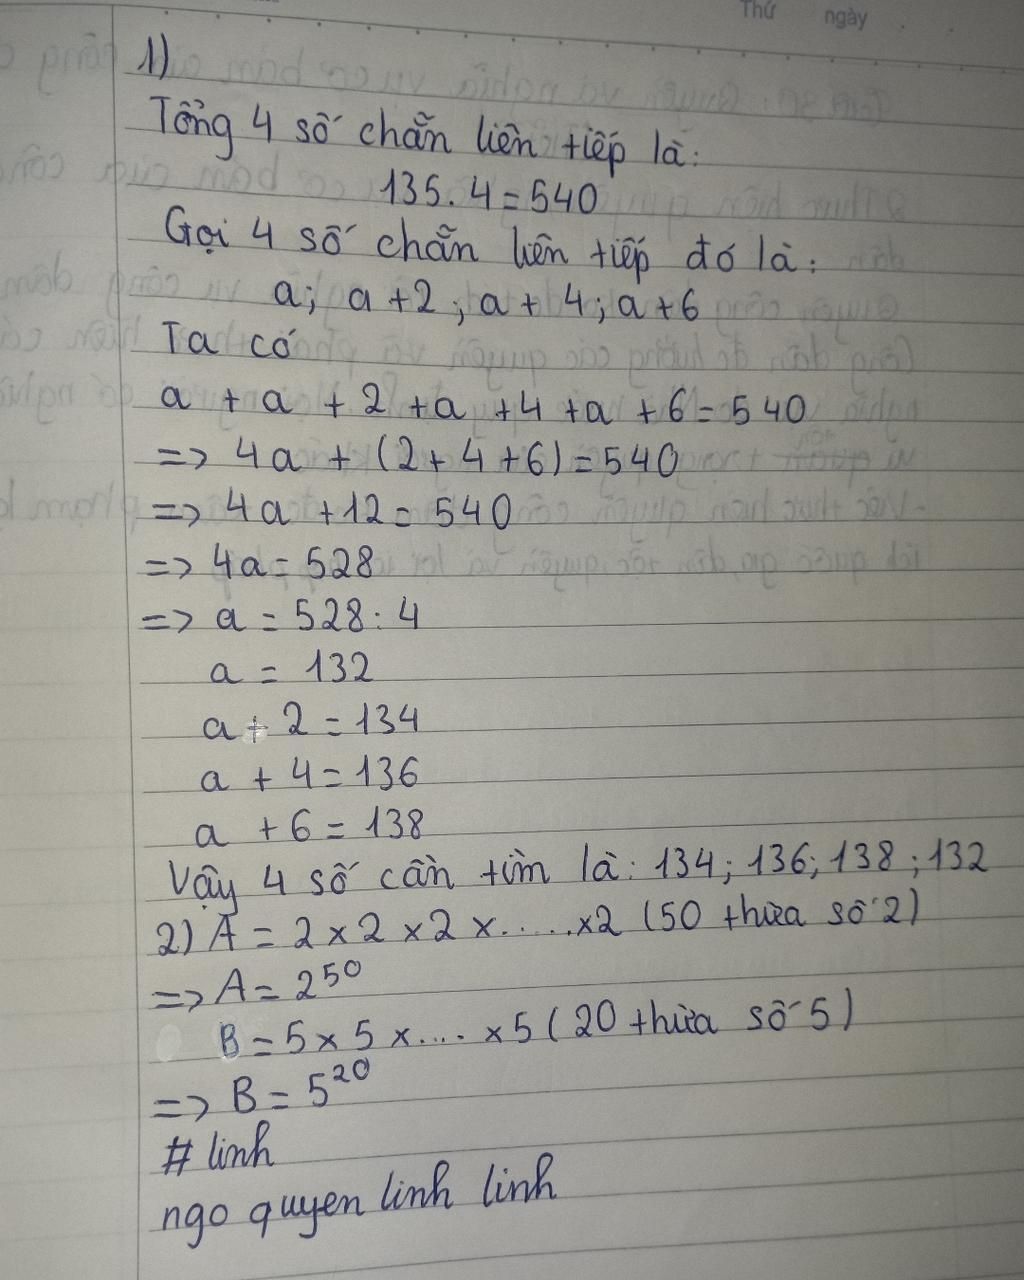 Thứ ngày
1)
Tổng 4 số chẵn liên tiếp là:
135.4=540
Gọi 4 số chẵn liên tiếp đó là:
a; a+2; a+4; a+6
Ta có
a + a + 2 + a + 4 + a + 6 = 540
=> 4a + (2+4+6) = 540
=> 4a +12 = 540
=> 4a = 528
=> a = 528 : 4
a = 132
a + 2 = 134
a + 4 = 136
a + 6 = 138
Vậy 4 số cần tìm là: 134; 136; 138; 132
2) A = 2 x 2 x 2 x.....x2 (50 thừa số 2)
=> A = 2⁵⁰
B = 5 x 5 x.... x 5 (20 thừa số 5)
=> B = 5²⁰
# linh
ngo quyen linh linh